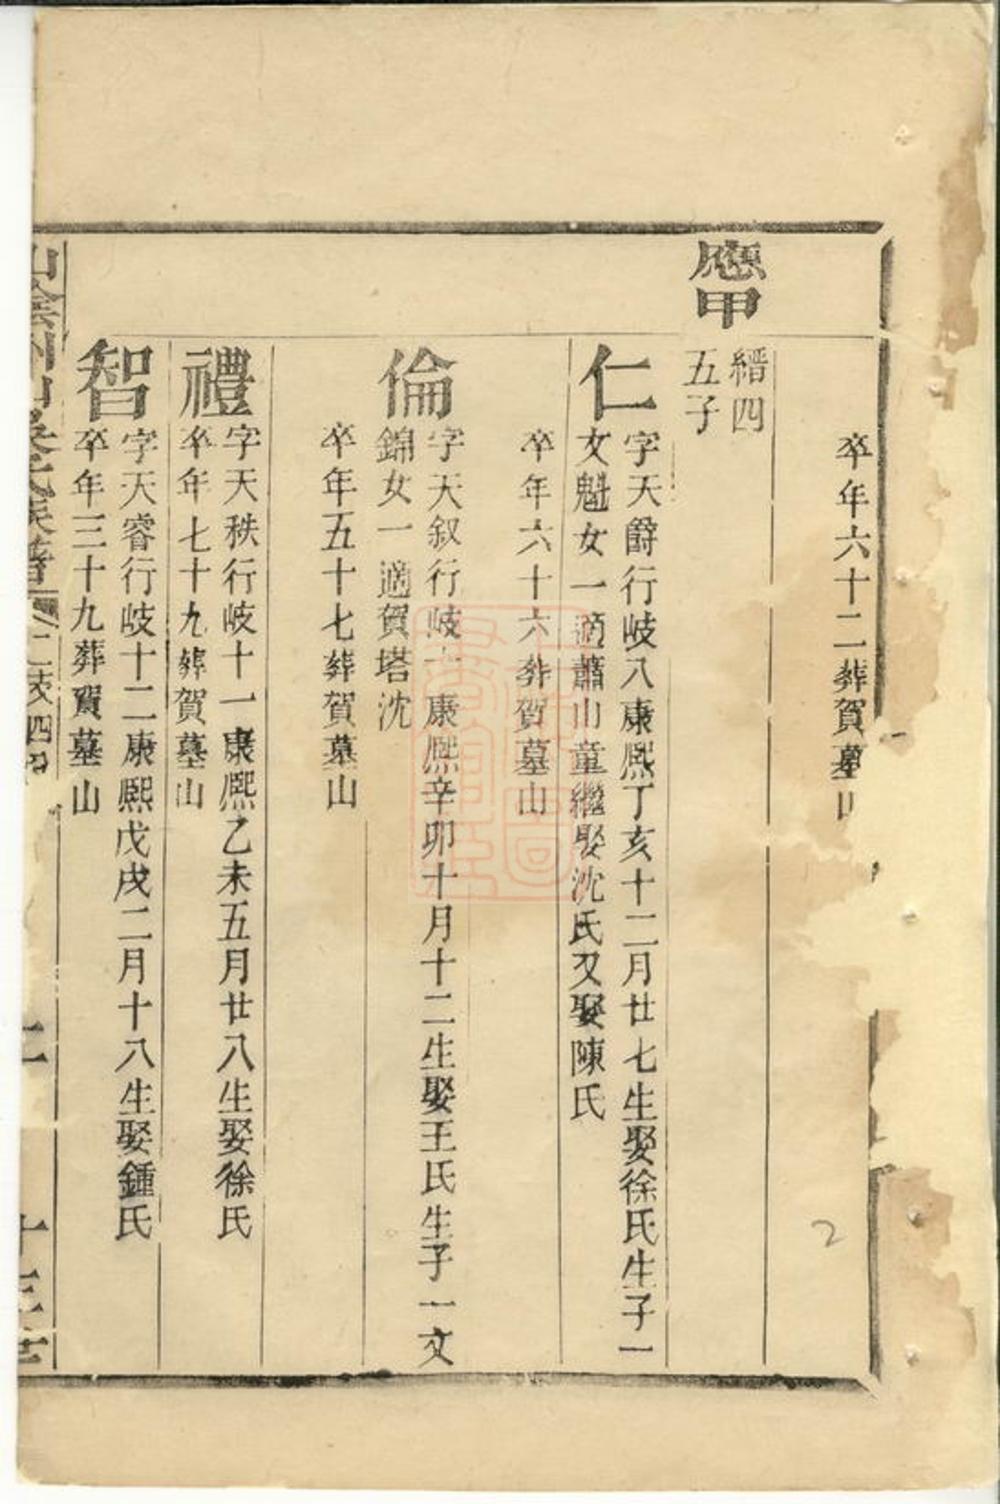 卒年六十二葬賀墓山
應甲
縉四
五子
仁
字天爵行岐八康熙丁亥十二月廿七生娶徐氏生子一
文魁女一適蕭山童繼娶沈氏又娶陳氏
卒年六十六葬賀墓山
倫
字天叙行岐十康熙辛卯十月十二生娶王氏生子一文
錦女一適賀塔沈
卒年五十七葬賀墓山
禮
字天秩行岐十一康熙乙未五月廿八生娶徐氏
卒年七十九葬賀墓山
智
字天睿行岐十二康熙戊戌二月十八生娶鍾氏
卒年三十九葬賀墓山
氏族譜
二岐四
十三世
2